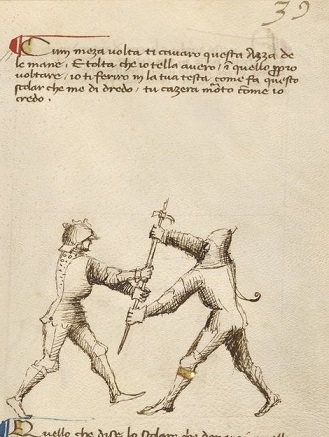 39
Cum meza volta ti cavaro questa Azza de
le mane. E tolta che io tella avero, in quello proprio
voltare, io ti feriro in la tua testa come fa questo
scolar che me di dredo, tu cazera moto come io
credo.
Quello che dise lo scolar